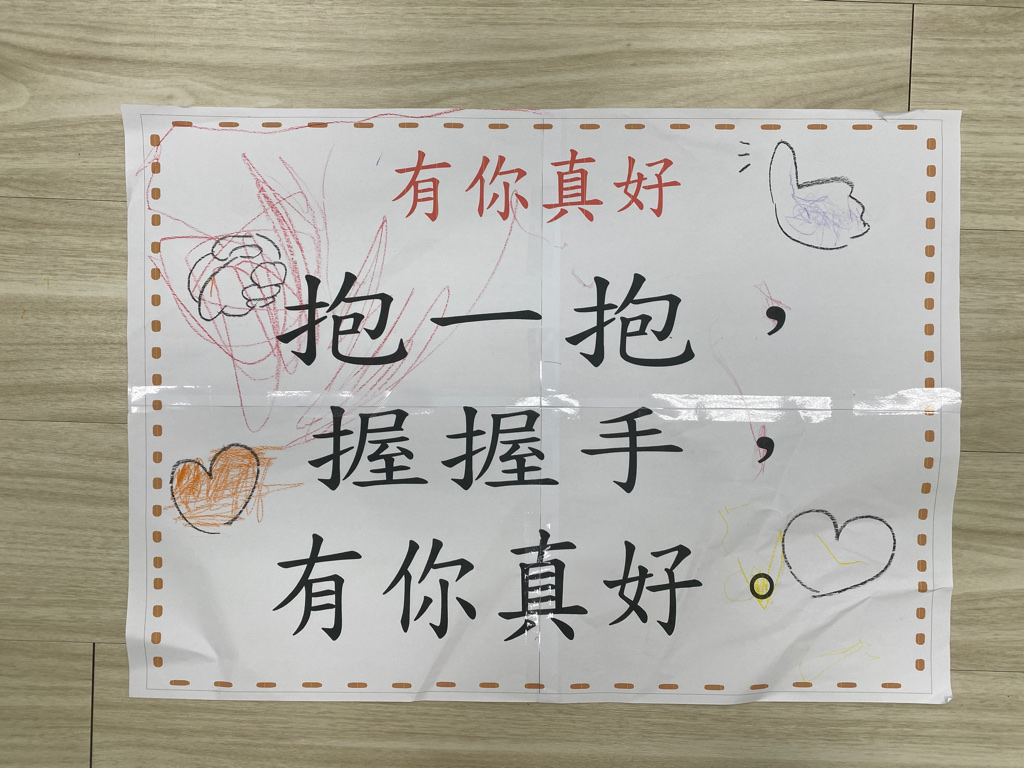 有你真好
抱一抱，
握握手，
有你真好。